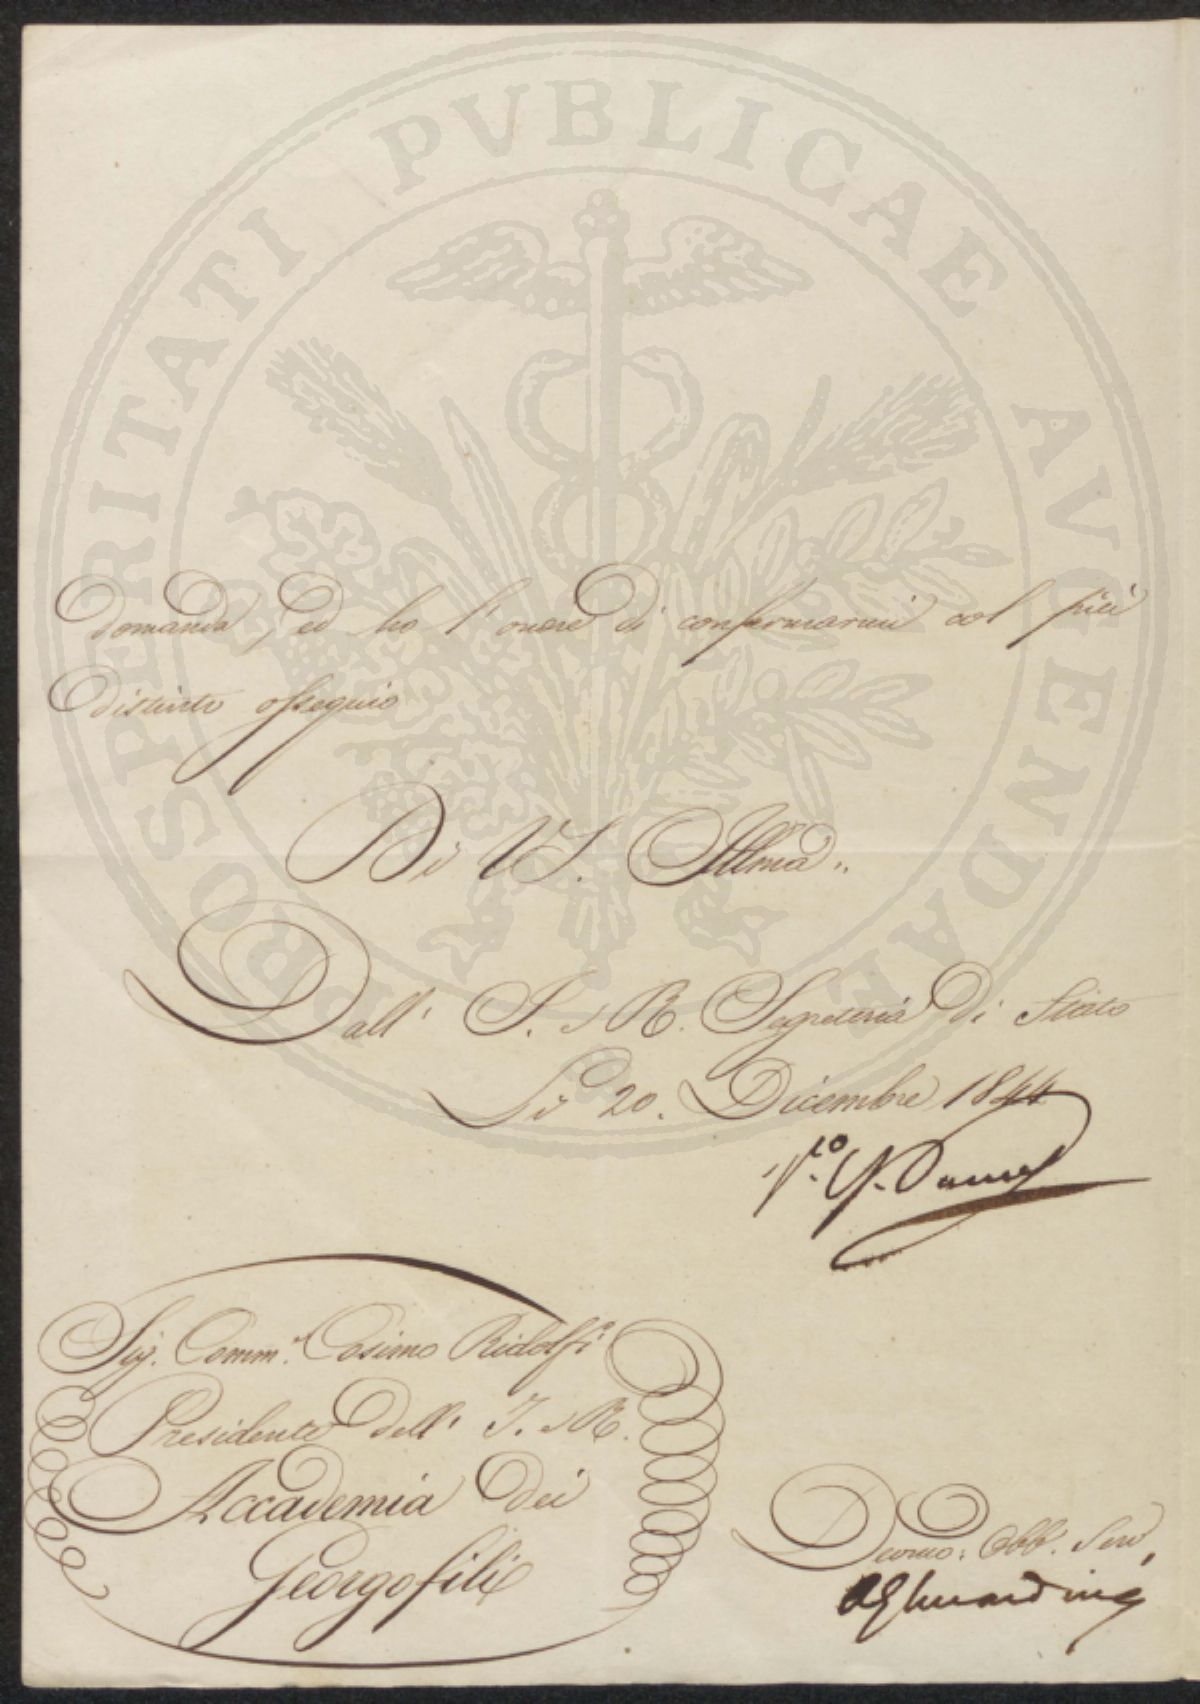 PROSPERITATI PVBLICAE AVGENDAE
domanda, ed ho l'onore di confermarmi col più
distinto ossequio
Di VS. Illma..
Dall' I. e R. Segreteria di Stato
Li 20. Dicembre 1844
Sig. Comm.e Cosimo Ridolfi
Presidente dell' I. e R.
Accademia dei
Georgofili
Devmo: Obb. Serv,